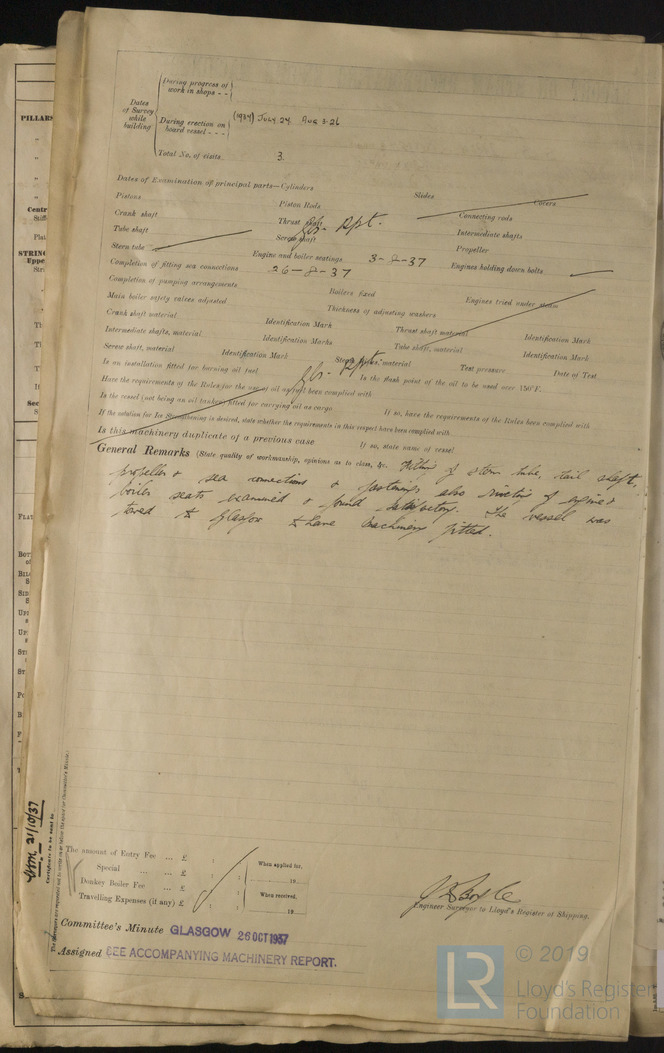 During progress of work in shops - -
Dates of Survey while building
During erection on board vessel - - -
(1937) July 24 Aug 3-26
Total No. of visits
3.
Dates of Examination of principal parts—Cylinders
Slides
Covers
Pistons
Piston Rods
Connecting rods
Crank shaft
Thrust shaft
Intermediate shafts
Tube shaft
Screw shaft
Propeller
Stern tube
Engine and boiler seatings
3-8-37
Engines holding down bolts
Completion of fitting sea connections
26-8-37
Completion of pumping arrangements
Boilers fixed
Engines tried under steam
Main boiler safety valves adjusted
Thickness of adjusting washers
Crank shaft material
Identification Mark
Thrust shaft material
Identification Mark
Intermediate shafts, material
Identification Marks
Tube shaft, material
Identification Mark
Screw shaft, material
Identification Mark
Steam Pipes, material
Test pressure
Date of Test
Is an installation fitted for burning oil fuel
Is the flash point of the oil to be used over 150°F.
Have the requirements of the Rules for the use of oil as fuel been complied with
Is the vessel (not being an oil tanker) fitted for carrying oil as cargo
If so, have the requirements of the Rules been complied with
If the notation for Ice Strengthening is desired, state whether the requirements in this respect have been complied with
Is this machinery duplicate of a previous case
If so, state name of vessel
General Remarks (State quality of workmanship, opinions as to class, &c. Fitting of stern tube, tail shaft,
propeller & sea connections & fastenings also riveting of engine &
boiler seats examined & found satisfactory. The vessel was
towed to Glasgow to have machinery fitted.
21/10/37
Certificate to be sent to
The amount of Entry Fee ... £ : :
Special ... ... £ : :
Donkey Boiler Fee ... £ : :
Travelling Expenses (if any) £ : :
When applied for,
19
When received,
19
Engineer Surveyor to Lloyd's Register of Shipping.
Committee's Minute GLASGOW 26 OCT 1937
Assigned SEE ACCOMPANYING MACHINERY REPORT.
PILLARS
LR
© 2019
Lloyd's Register
Foundation